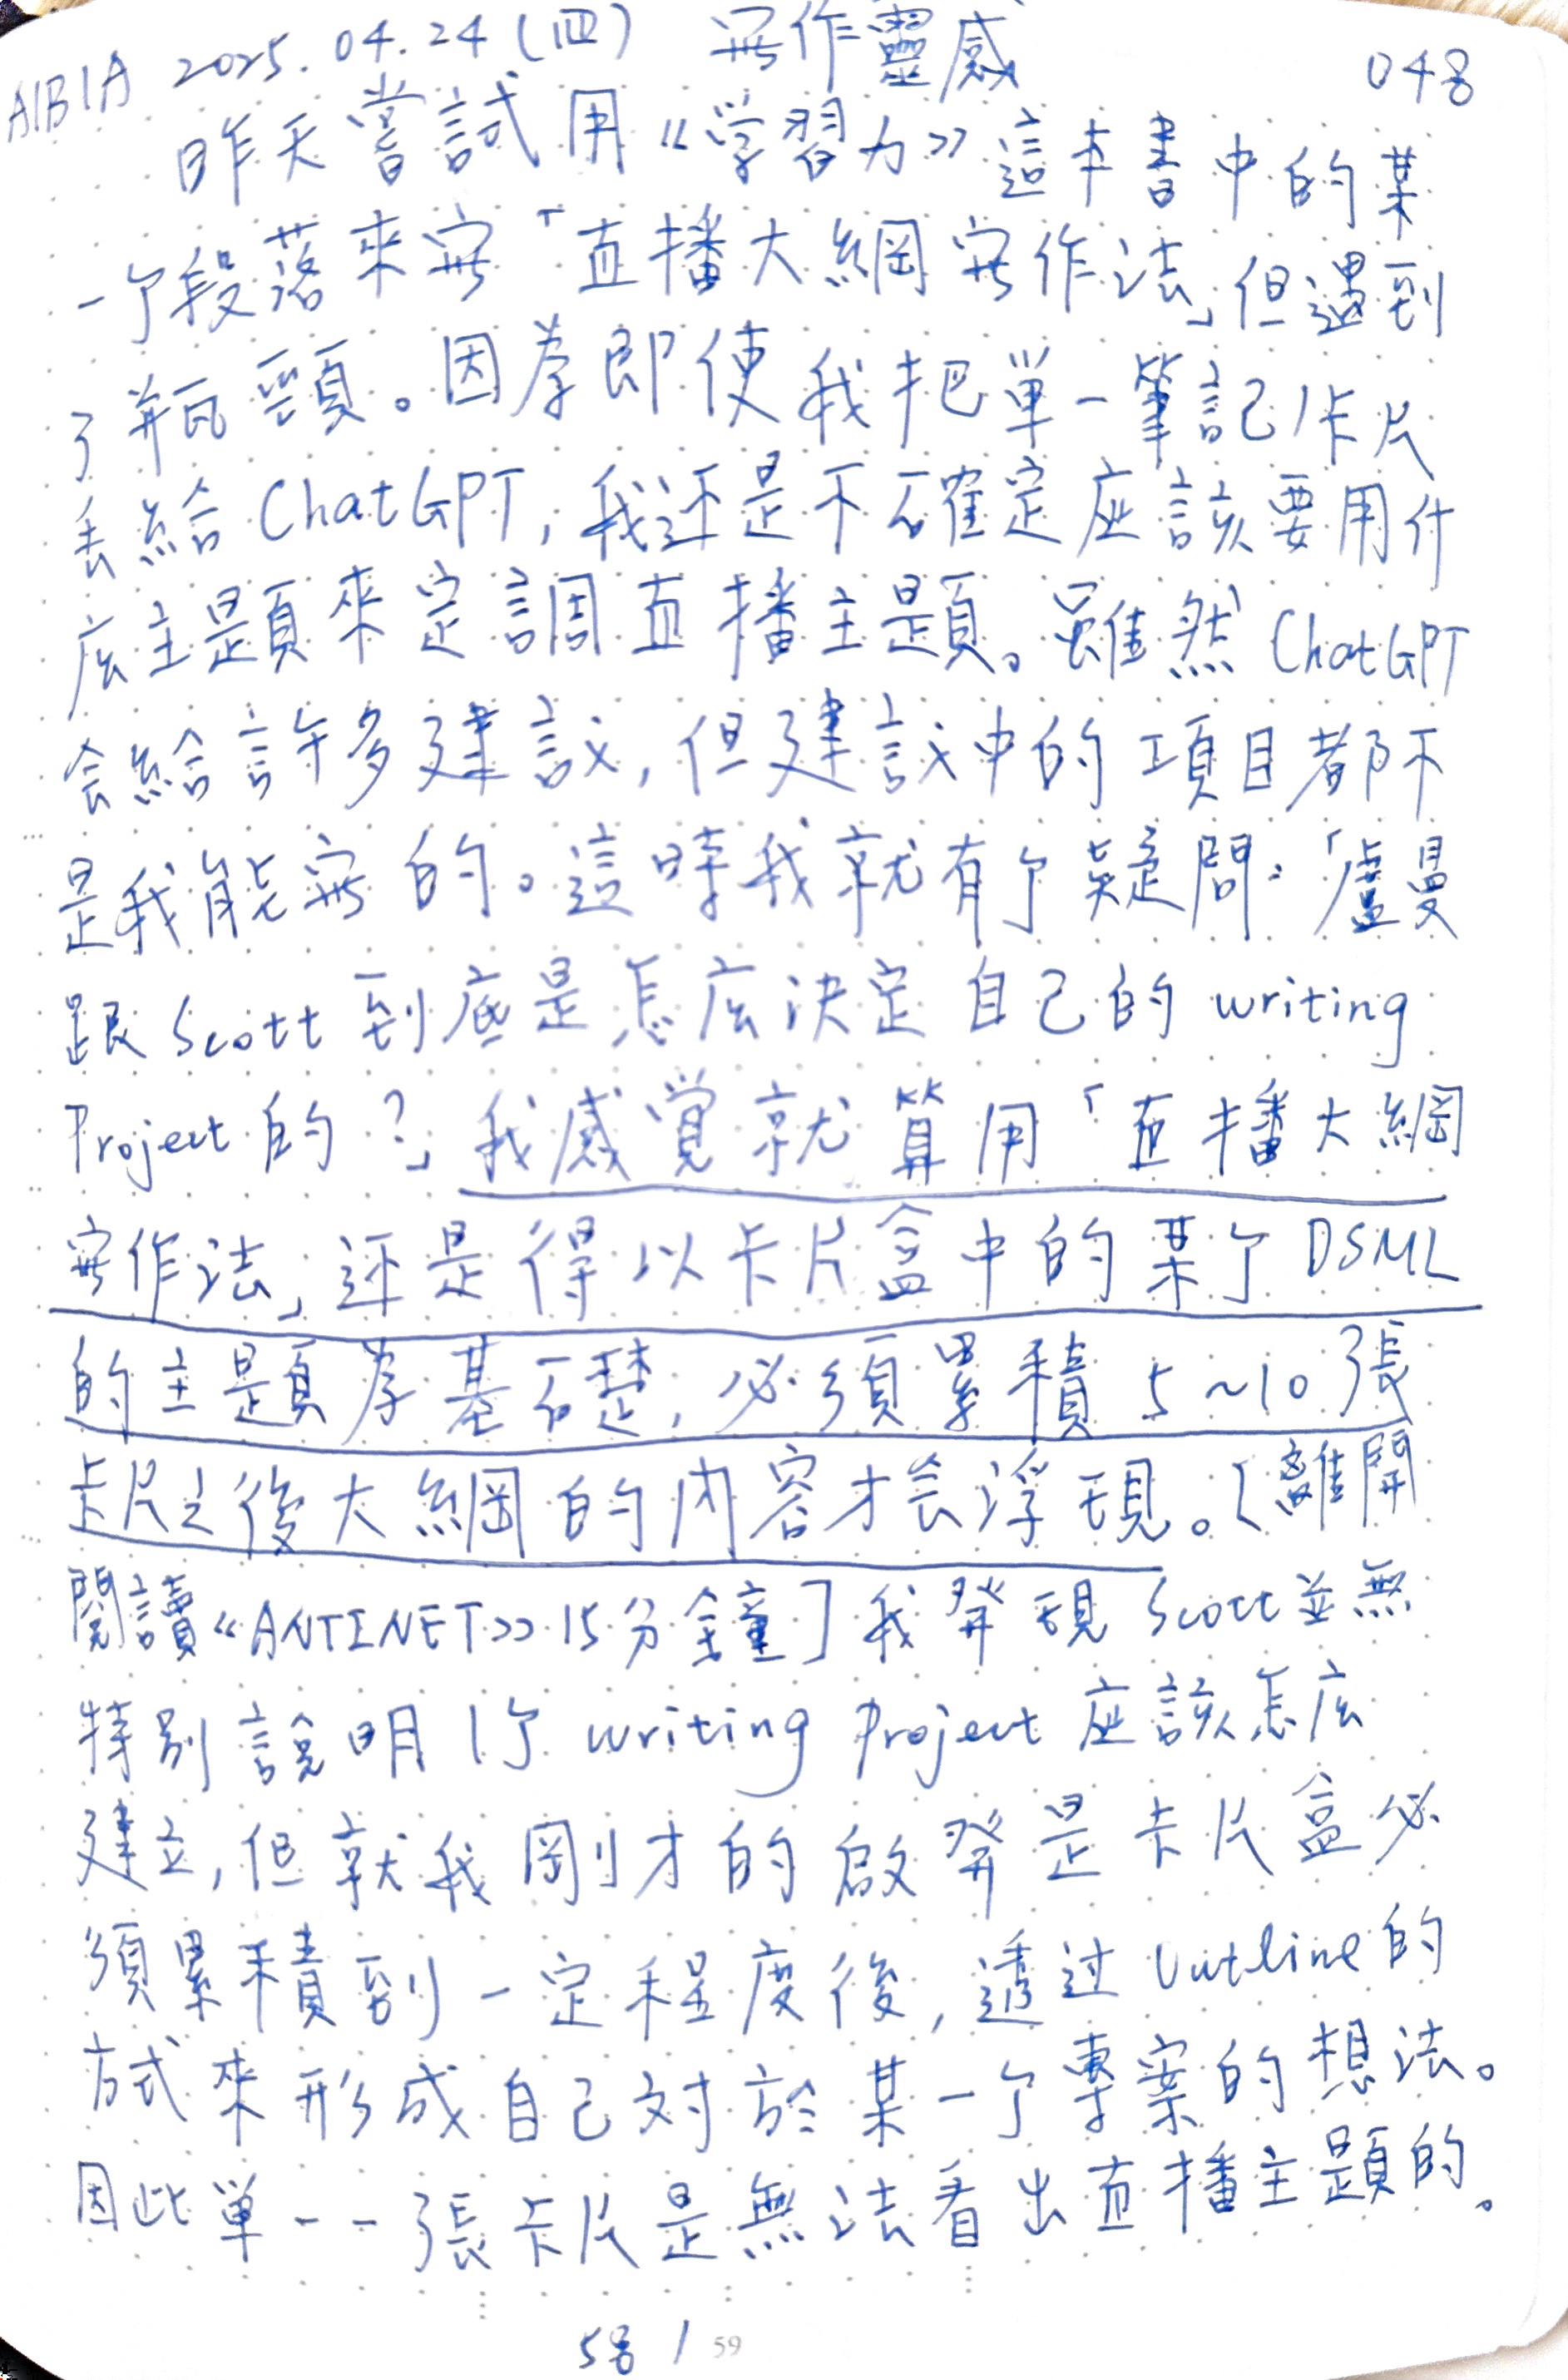 A1B1A 2025.04.24(四) 寫作靈感 048
昨天嘗試用《学習力》這本書中的某
一个段落來寫「直播大綱寫作法」但遇到
了瓶頸。因為即使我把单一筆記/卡片
丢給ChatGPT,我还是不確定应該要用什
么主題來定調直播主題。雖然ChatGPT
会給許多建議,但建議中的項目都不
是我能寫的。這時我就有个疑問:「盧曼
跟Scott到底是怎么決定自己的writing
Project的?」我感覚就算用「直播大綱
寫作法」还是得以卡片盒中的某个DSML
的主題為基礎,必須累積5~10張
卡片之後大綱的內容才会浮現。[離開
閱讀《ANTINET》15分鐘]我発現Scott並無
特別說明1个writing Project应該怎么
建立,但就我剛才的啟発是卡片盒必
須累積到一定程度後,透过Outline的
方式來形成自己对於某一个專案的想法。
因此单一一張卡片是無法看出直播主題的。
58 / 59